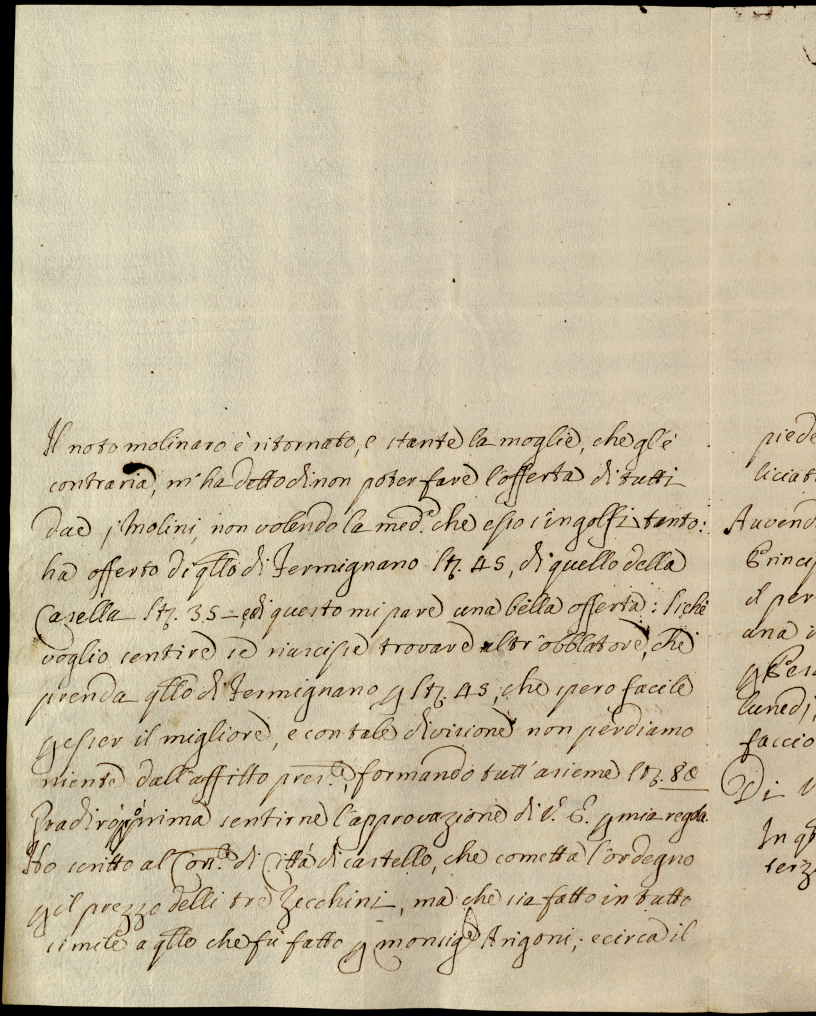 Il noto molinaro è ritornato, e stante la moglie, che gl'è
contraria, m'ha detto di non poter fare l'offerta di tutti
due i Molini, non volendo la med.ᵃ che esso s'ingolfi tanto:
ha offerto di qllo di Fermignano 45, di quello della
Casella 35 – e di questo mi pare una bella offerta: sichè
voglio sentire se riuscisse trovare altr'obblatore, che
prenda qllo di Fermignano p 45, che spero facile
p esser il migliore, e con tale divisione non perdiamo
niente dall'affitto pres.ᵗᵉ, formando tutt'asieme 80
Gradirò però prima sentirne l'approvazione di V. E. p mia regola.
Ho scritto al Con.ᵗᵉ di Città di Castello, che cometta l'ordegno
p il prezzo delli tre Zecchini, ma che sia fatto in tutto
simile a qllo che fù fatto p monsig.ʳ Arigoni; e circa il
piede
liciat
Avend
Princip
il per
una
lunedì,
faccio
Di V
In q
serz